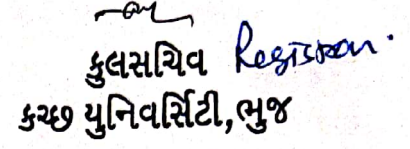 કુલસચિવ Registrar.
કચ્છ યુનિવર્સિટી, ભુજ